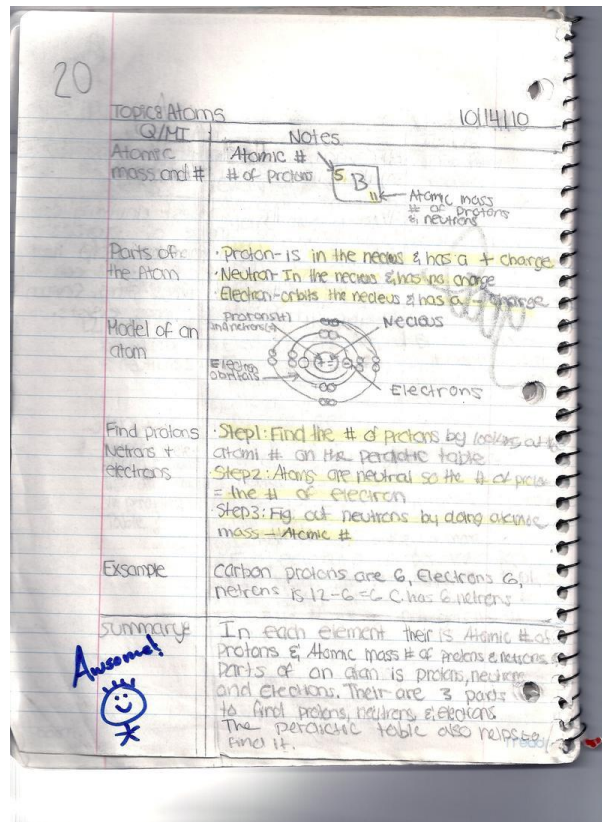 20
Topic: Atoms 10/14/10
Q/MI Notes
Atomic mass and #
Atomic #
# of protons
5 B 11
Atomic mass
# of protons
& neutrons
Parts of the Atom
· Proton- is in the necleus & has a + charge
· Neutron- In the necleus & has no charge
· Electron- orbits the necleus & has a - charge
Model of an atom
protons(+)
and netrons(=)
Necleus
Electron
orbitals
Electrons
Find protons
Netrons +
electrons
· Step1: Find the # of protons by looking at the
atomi # on the perdiotic table
Step2: Atoms are neutral so the # of proton
= the # of electron
Step3: Fig out neutrons by doing atomic
mass - Atomic #
Exsample
carbon protons are 6, Electrons 6,
netrons is 12-6=6 C has 6 netrons
summary:
In each element their is Atomic # of
protons & Atomic mass # of protons & netrons.
Parts of an atan is protons, neutrons
and electrons. Their are 3 parts
to find protons, neutrons, & electrons
The perdictic table also helps to
find it.
Awsome!